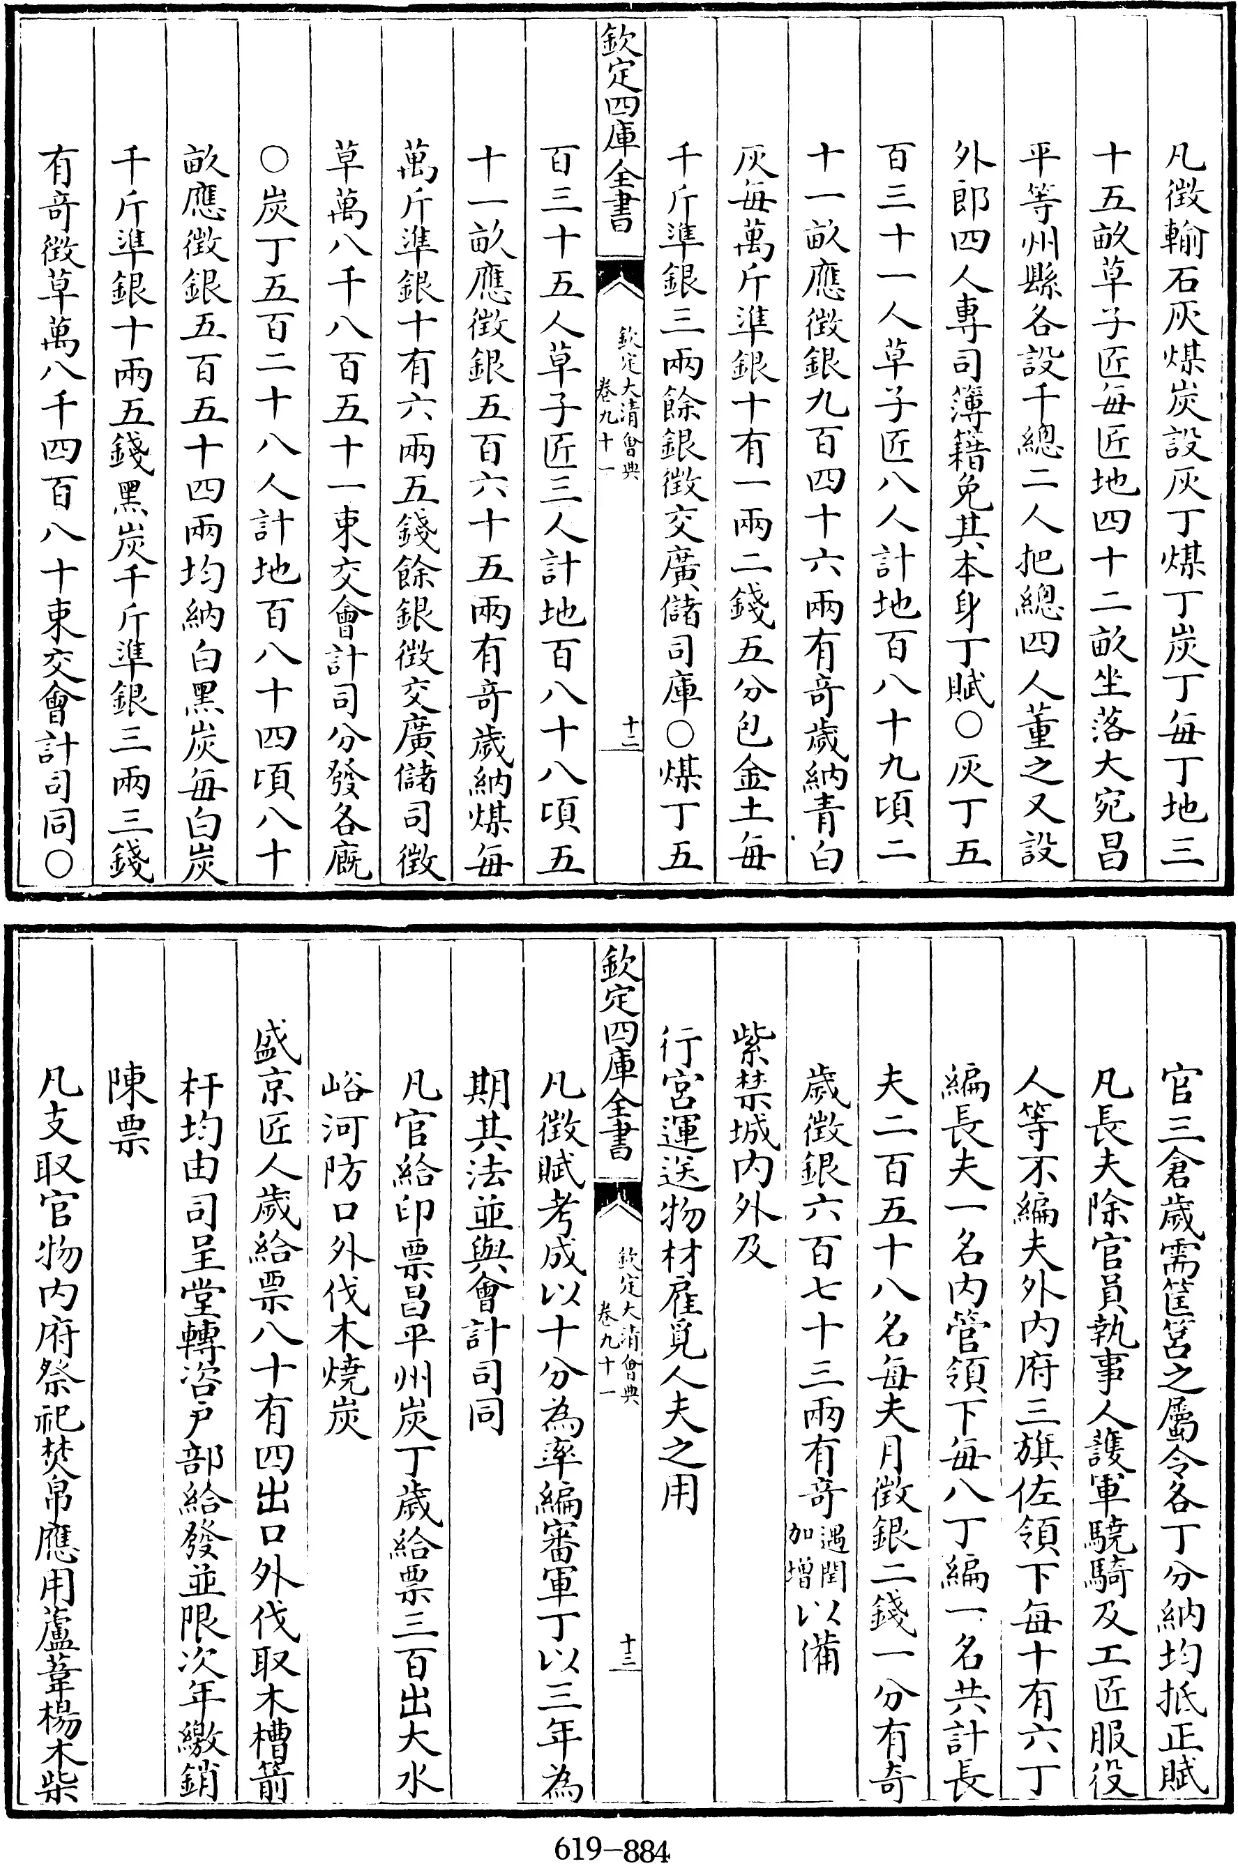 凡徵輸石灰煤炭設灰丁煤丁炭丁每丁地三
十五畝草子匠每匠地四十二畝坐落大宛昌
平等州縣各設千總二人把總四人董之又設
外郎四人專司簿籍免其本身丁賦○灰丁五
百三十一人草子匠八人計地百八十九頃二
十一畝應徵銀九百四十六兩有奇歲納青白
灰每萬斤準銀十有一兩二錢五分包金土每
千斤準銀三兩餘銀徵交廣儲司庫○煤丁五
欽定四庫全書
欽定大清會典
卷九十一
十二
百三十五人草子匠三人計地百八十八頃五
十一畝應徵銀五百六十五兩有奇歲納煤每
萬斤準銀十有六兩五錢餘銀徵交廣儲司徵
草萬八千八百五十一束交會計司分發各廐
○炭丁五百二十八人計地百八十四頃八十
畝應徵銀五百五十四兩均納白黑炭每白炭
千斤準銀十兩五錢黑炭千斤準銀三兩三錢
有奇徵草萬八千四百八十束交會計司同○
官三倉歲需筐筥之屬令各丁分納均抵正賦
凡長夫除官員執事人護軍驍騎及工匠服役
人等不編夫外內府三旗佐領下每十有六丁
編長夫一名內管領下每八丁編一名共計長
夫二百五十八名每夫月徵銀二錢一分有奇
歲徵銀六百七十三兩有奇遇閏加增以備
紫禁城內外及
行宮運送物材雇覓人夫之用
欽定四庫全書
欽定大清會典
卷九十一
十三
凡徵賦考成以十分為率編審軍丁以三年為
期其法並與會計司同
凡官給印票昌平州炭丁歲給票三百出大水
峪河防口外伐木燒炭
盛京匠人歲給票八十有四出口外伐取木槽箭
杆均由司呈堂轉咨戶部給發並限次年繳銷
陳票
凡支取官物內府祭祀焚帛應用蘆葦楊木柴
619-884